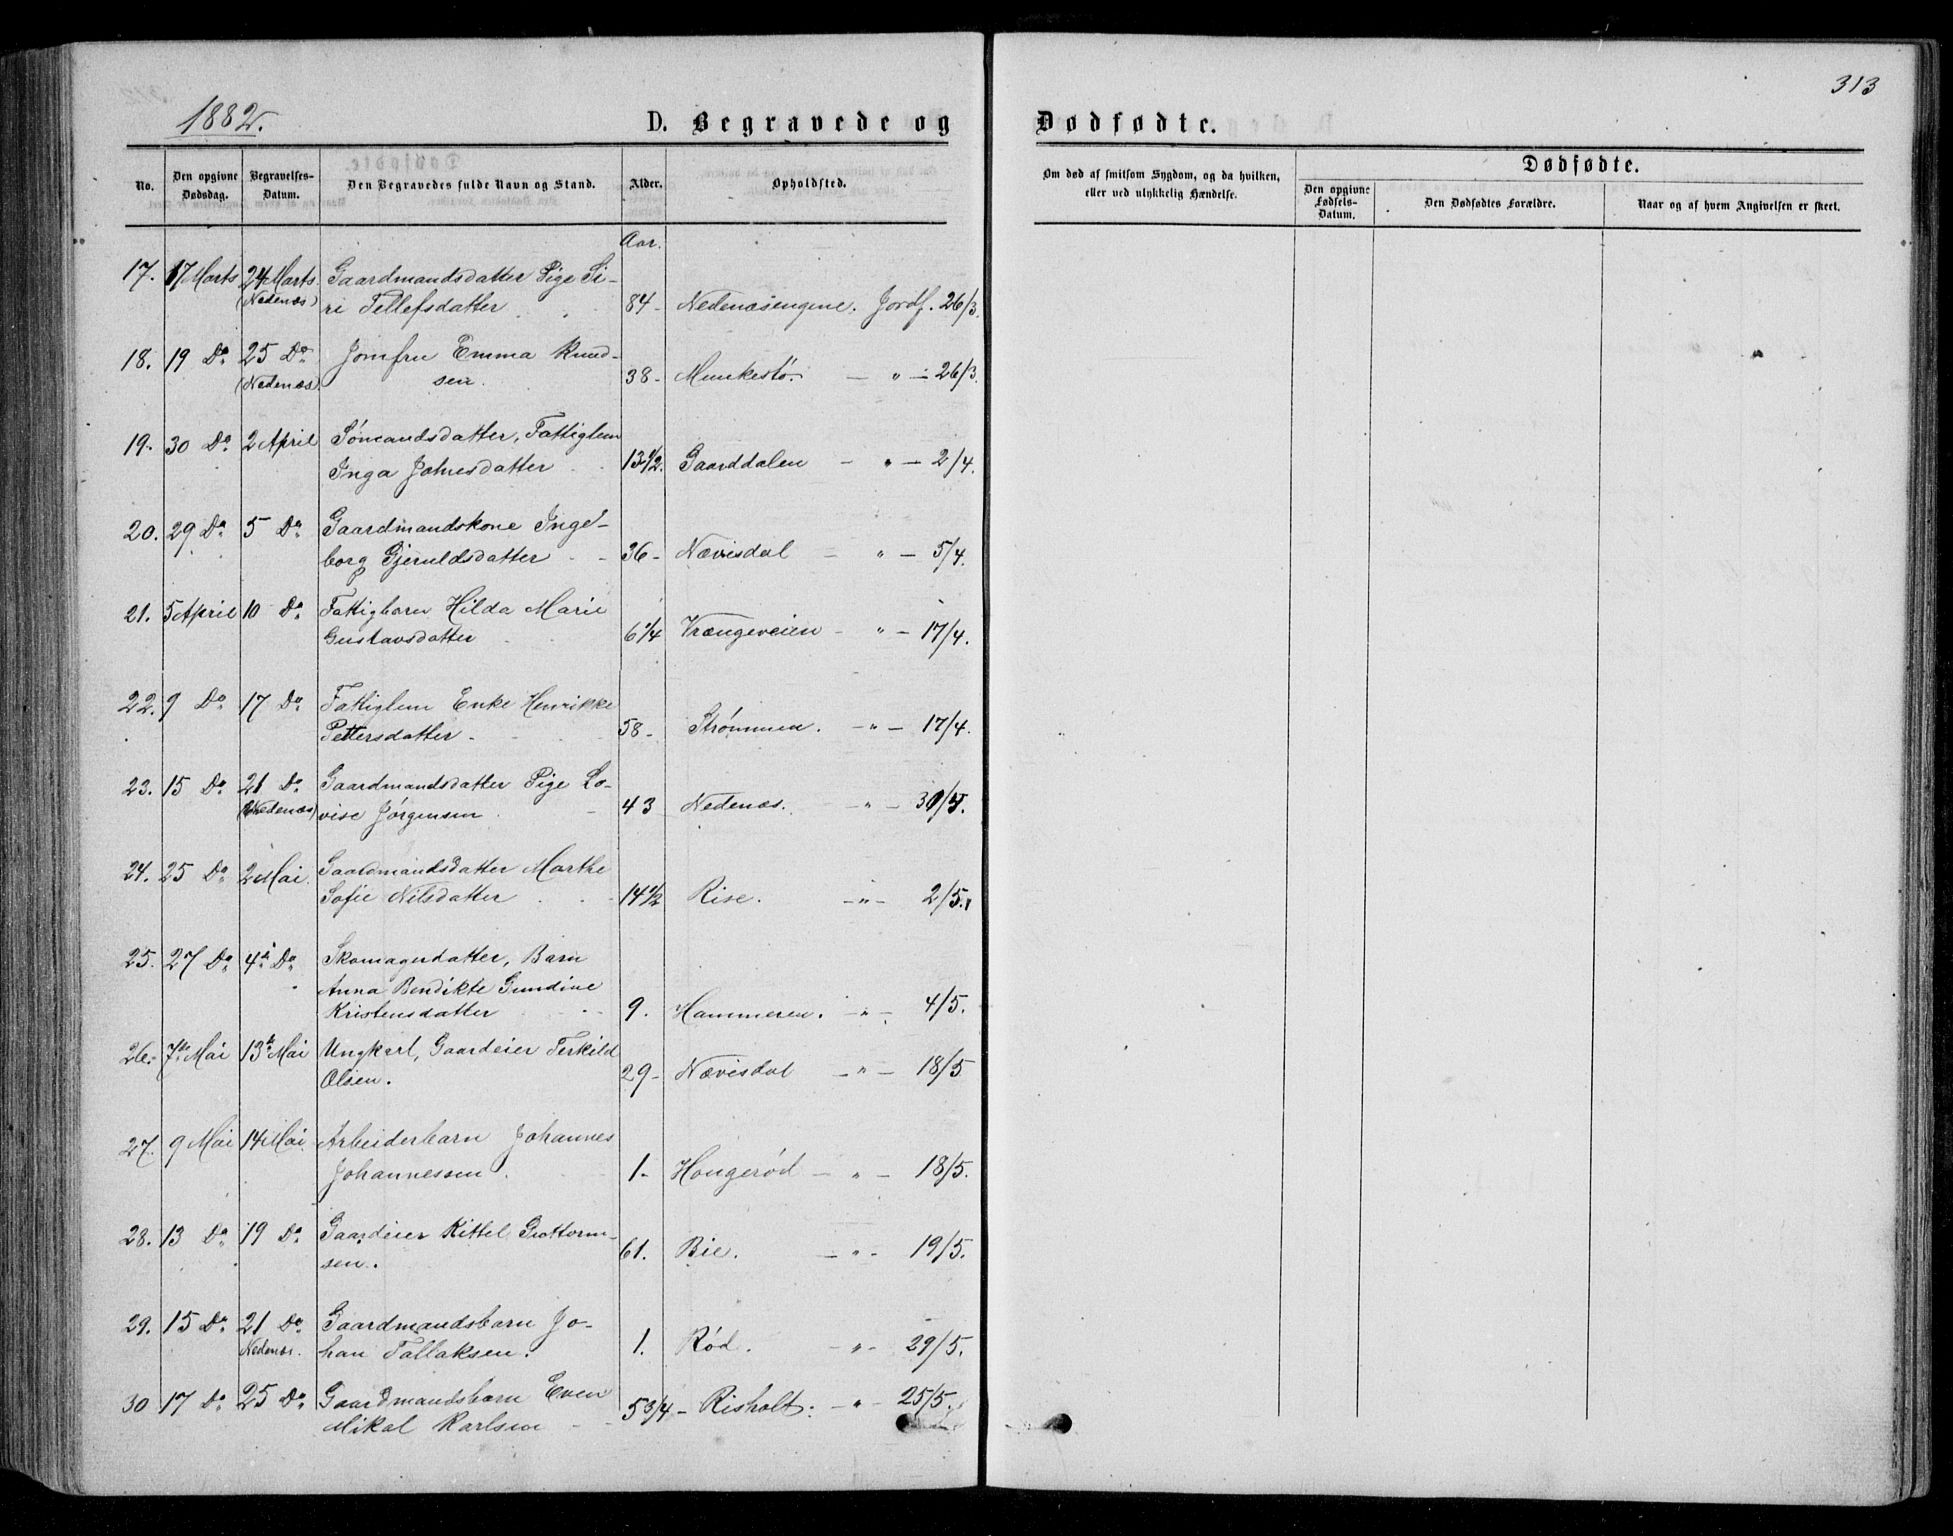 313
1882.
D. Begravede og Dødfødte.
No.
Den opgivne Dødsdag.
Begravelses-Datum.
Den Begravedes fulde Navn og Stand.
Alder.
Opholdsted.
Om død af smitsom Sygdom, og da hvilken, eller ved ulykkelig Hændelse.
Dødfødte.
Den opgivne Fødsels-Datum.
Den Dødfødtes Forældre.
Naar og af hvem Angivelsen er skeet.
Aar.
17. 17 Marts 24 Marts Gaardmandsdatter Pige Si-
(Nedenæs) ri Tellefsdatter 84 - Nedenæsengene. Jordf. 26/3.
18. 19 Do 25 Do Jomfru Emma Knud-
(Nedenæs) sen. 38 - Munkestø. — " — 26/3.
19. 30 Do 2 April Sømandsdatter, Fattiglem
Inga Johnesdatter 13 1/2. Gaarddalen — " — 2/4.
20. 29 Do 5 Do Gaardmandskone Inge-
borg Gjeruldsdatter 36 - Nævisdal — " — 5/4.
21. 5 April 10 Do Fattigbarn Hilda Marie
Gustavsdatter 6 1/4 Vrængeveien — " — 17/4.
22. 9 Do 17 Do Fattiglem Enke Henrikke
Pettersdatter. 58 - Strømmen. — " — 17/4.
23. 15 Do 21 Do Gaardmandsdatter Pige Lo-
(Nedenæs) vise Jørgensen 43 Nedenæs. — " — 30/4.
24. 25 Do 2 Mai Gaardmandsdatter Marthe
Sofie Nilsdatter 14 1/2 Rise. — " — 2/5.
25. 27 Do 4 Do Skomagerdatter, Barn
Anna Bendikte Gundine
Kristensdatter 9. Hammeren. — " — 4/5.
26. 7de Mai 13de Mai Ungkarl, Gaardeier Terkild
Olsen. 29 - Nævisdal — " — 18/5
27. 9 Mai 14 Mai. Arbeiderbarn Johannes
Johannessen. 1. Hougerød — " — 18/5.
28. 13 Do 19 Do Gaardeier Kittel Guttorm-
sen. 61. Bie. — " — 19/5.
29. 15 Do 21 Do Gaardmandsbarn Jo-
Nedenæs. han Tallaksen. 1. Rød. — " — 29/5.
30 17 Do 25 Do Gaardmandsbarn Even
Mikal Karlsen 5 3/4 - Risholt. — " — 25/5.